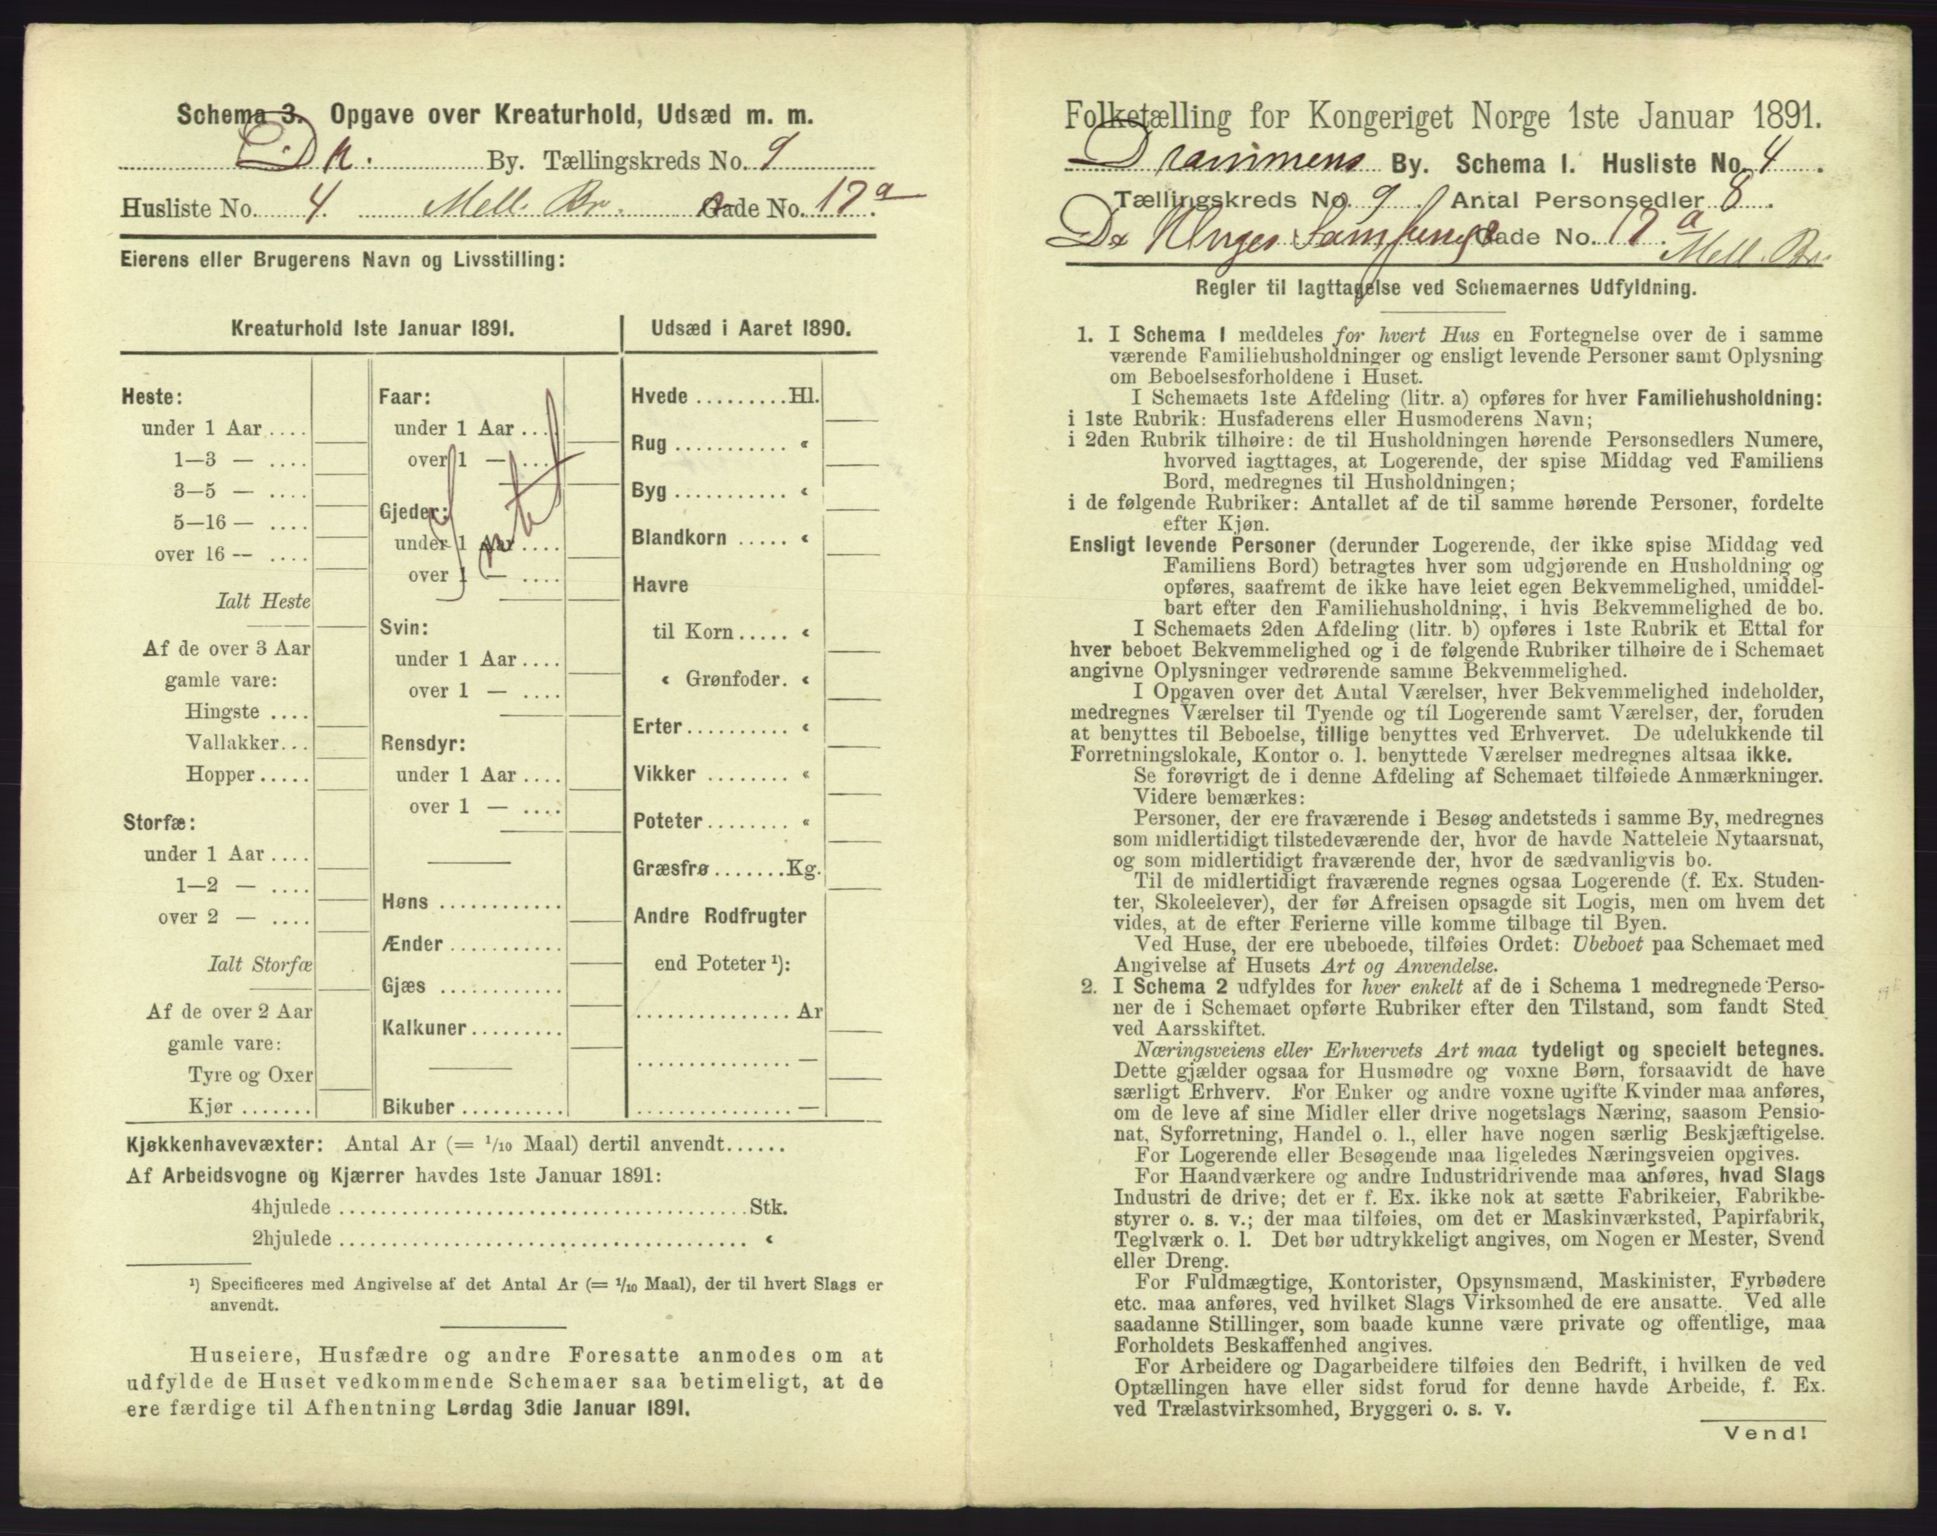 Schema 3. Opgave over Kreaturhold, Udsæd m. m.
Dr. By. Tællingskreds No. 9
Husliste No. 4. Mell. Br. Gade No. 17a.
Eierens eller Brugerens Navn og Livsstilling:
Kreaturhold 1ste Januar 1891.
Heste:
under 1 Aar ....
1—3 — ....
3—5 — ....
5—16 — ....
over 16 — ....
Ialt Heste
Af de over 3 Aar
gamle vare:
Hingste ....
Vallakker...
Hopper.....
Storfæ:
under 1 Aar ....
1—2 — ....
over 2 — ....
Ialt Storfæ
Af de over 2 Aar
gamle vare:
Tyre og Oxer
Kjør .......
Faar:
under 1 Aar ....
over 1 — ....
Gjeder:
under 1 Aar ....
over 1 — ....
Svin:
under 1 Aar ....
over 1 — ....
Rensdyr:
under 1 Aar ....
over 1 — ....
Høns ............
Ænder ..........
Gjæs ............
Kalkuner .........
Bikuber ..........
Udsæd i Aaret 1890.
Hvede .........Hl.
Rug ........... «
Byg ........... «
Blandkorn ..... «
Havre
til Korn ..... «
« Grønfoder. «
Erter .......... «
Vikker ........ «
Poteter ........ «
Græsfrø .......Kg.
Andre Rodfrugter
end Poteter ¹):
............... Ar
............... —
............... —
Kjøkkenhavevæxter: Antal Ar (= 1/10 Maal) dertil anvendt......
Af Arbeidsvogne og Kjærrer havdes 1ste Januar 1891:
4hjulede ........................................Stk.
2hjulede ........................................ «
¹) Specificeres med Angivelse af det Antal Ar (= 1/10 Maal), der til hvert Slags er
anvendt.
Huseiere, Husfædre og andre Foresatte anmodes om at
udfylde de Huset vedkommende Schemaer saa betimeligt, at de
ere færdige til Afhentning Lørdag 3die Januar 1891.
Folketælling for Kongeriget Norge 1ste Januar 1891.
Drammens By. Schema I. Husliste No. 4.
Tællingskreds No. 9. Antal Personsedler 8.
De Unges Samfunds Gade No. 17a. Mell. Br.
Regler til Iagttagelse ved Schemaernes Udfyldning.
1. I Schema 1 meddeles for hvert Hus en Fortegnelse over de i samme
værende Familiehusholdninger og ensligt levende Personer samt Oplysning
om Beboelsesforholdene i Huset.
I Schemaets 1ste Afdeling (litr. a) opføres for hver Familiehusholdning:
i 1ste Rubrik: Husfaderens eller Husmoderens Navn;
i 2den Rubrik tilhøire: de til Husholdningen hørende Personsedlers Numere,
hvorved iagttages, at Logerende, der spise Middag ved Familiens
Bord, medregnes til Husholdningen;
i de følgende Rubriker: Antallet af de til samme hørende Personer, fordelte
efter Kjøn.
Ensligt levende Personer (derunder Logerende, der ikke spise Middag ved
Familiens Bord) betragtes hver som udgjørende en Husholdning og
opføres, saafremt de ikke have leiet egen Bekvemmelighed, umiddel-
bart efter den Familiehusholdning, i hvis Bekvemmelighed de bo.
I Schemaets 2den Afdeling (litr. b) opføres i 1ste Rubrik et Ettal for
hver beboet Bekvemmelighed og i de følgende Rubriker tilhøire de i Schemaet
angivne Oplysninger vedrørende samme Bekvemmelighed.
I Opgaven over det Antal Værelser, hver Bekvemmelighed indeholder,
medregnes Værelser til Tyende og til Logerende samt Værelser, der, foruden
at benyttes til Beboelse, tillige benyttes ved Erhvervet. De udelukkende til
Forretningslokale, Kontor o. l. benyttede Værelser medregnes altsaa ikke.
Se forøvrigt de i denne Afdeling af Schemaet tilføiede Anmærkninger.
Videre bemærkes:
Personer, der ere fraværende i Besøg andetsteds i samme By, medregnes
som midlertidigt tilstedeværende der, hvor de havde Natteleie Nytaarsnat,
og som midlertidigt fraværende der, hvor de sædvanligvis bo.
Til de midlertidigt fraværende regnes ogsaa Logerende (f. Ex. Studen-
ter, Skoleelever), der før Afreisen opsagde sit Logis, men om hvem det
vides, at de efter Ferierne ville komme tilbage til Byen.
Ved Huse, der ere ubeboede, tilføies Ordet: Ubeboet paa Schemaet med
Angivelse af Husets Art og Anvendelse.
2. I Schema 2 udfyldes for hver enkelt af de i Schema 1 medregnede Perso-
ner de i Schemaet opførte Rubriker efter den Tilstand, som fandt Sted
ved Aarsskiftet.
Næringsveiens eller Erhvervets Art maa tydeligt og specielt betegnes.
Dette gjælder ogsaa for Husmødre og voxne Børn, forsaavidt de have
særligt Erhverv. For Enker og andre voxne ugifte Kvinder maa anføres,
om de leve af sine Midler eller drive nogetslags Næring, saasom Pensio-
nat, Syforretning, Handel o. l., eller have nogen særlig Beskjæftigelse.
For Logerende eller Besøgende maa ligeledes Næringsveien opgives.
For Haandværkere og andre Industridrivende maa anføres, hvad Slags
Industri de drive; det er f. Ex. ikke nok at sætte Fabrikeier, Fabrikbe-
styrer o. s. v.; der maa tilføies, om det er Maskinværksted, Papirfabrik,
Teglværk o. l. Det bør udtrykkeligt angives, om Nogen er Mester, Svend
eller Dreng.
For Fuldmægtige, Kontorister, Opsynsmænd, Maskinister, Fyrbødere
etc. maa anføres, ved hvilket Slags Virksomhed de ere ansatte. Ved alle
saadanne Stillinger, som baade kunne være private og offentlige, maa
Forholdets Beskaffenhed angives.
For Arbeidere og Dagarbeidere tilføies den Bedrift, i hvilken de ved
Optællingen have eller sidst forud for denne havde Arbeide, f. Ex.
ved Trælastvirksomhed, Bryggeri o. s. v.
Vend!